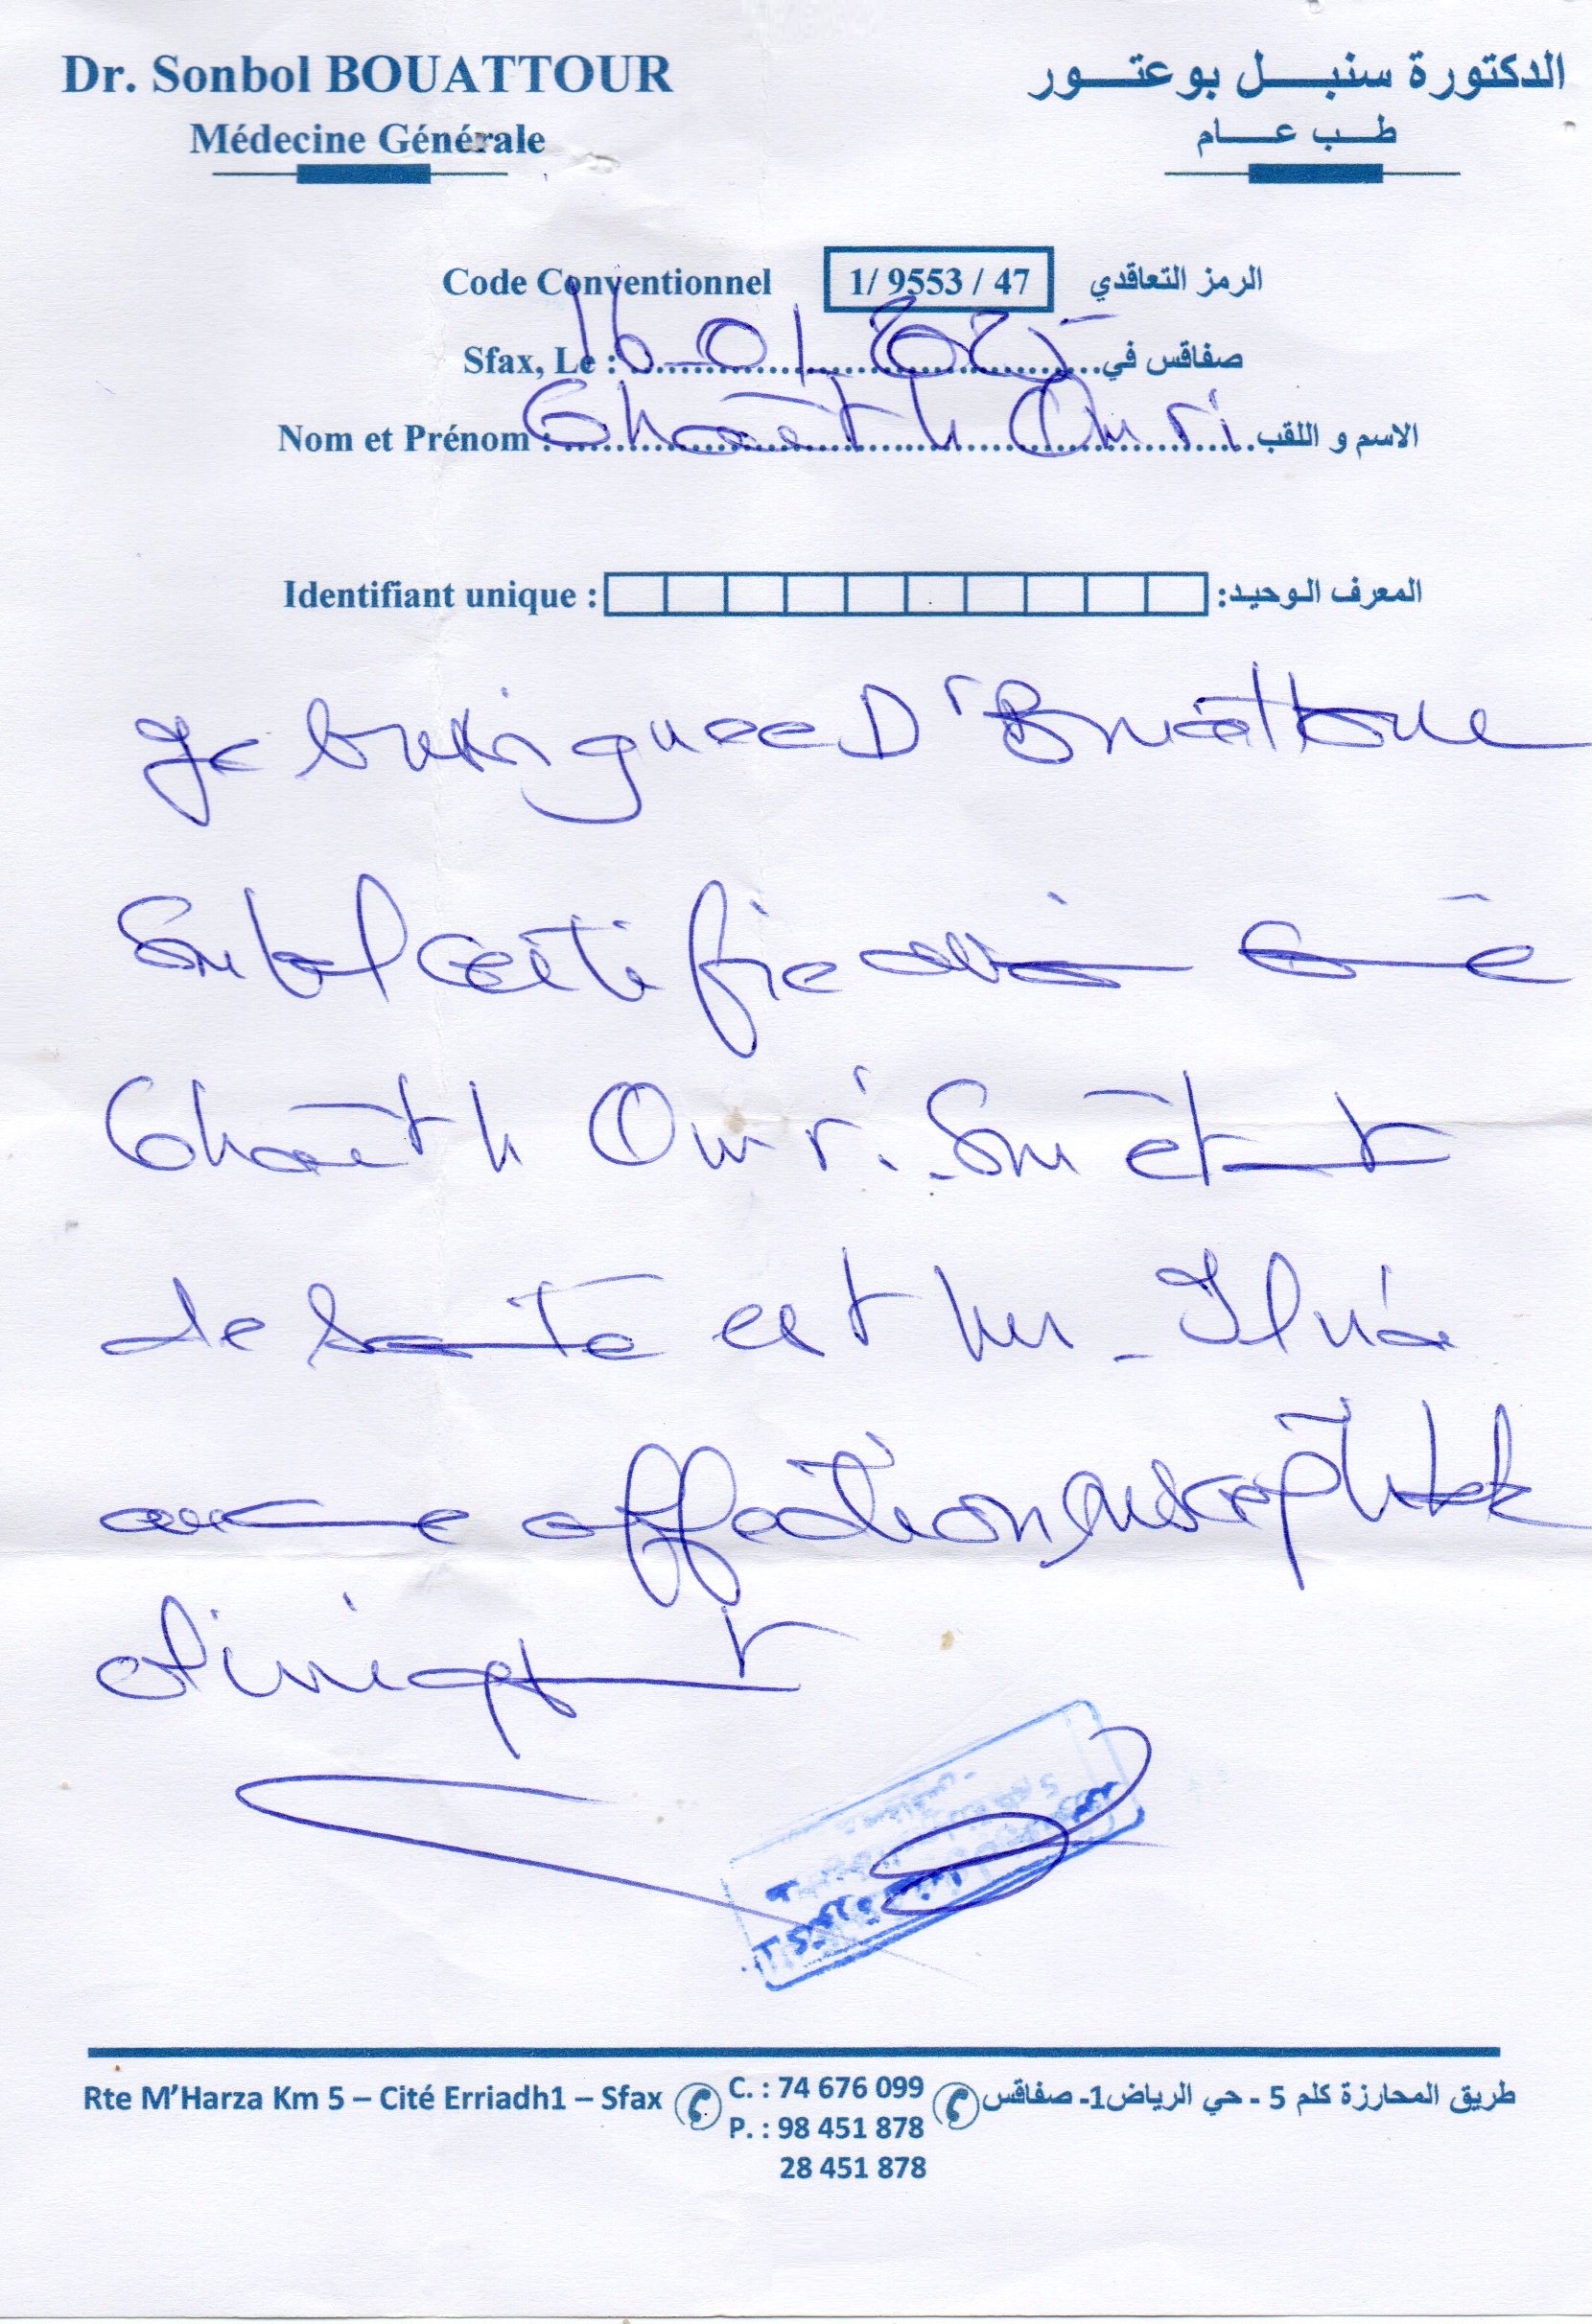 Dr. Sonbol BOUATTOUR
الدكتورة سنبل بوعتور
Médecine Générale
طب عام
Code Conventionnel 1/ 9553 / 47 الرمز التعاقدي
Sfax, Le : 16-01-2025 صفاقس في
Nom et Prénom : Ghaith Omri الاسم و اللقب
Identifiant unique : المعرف الوحيد:
Je soussignée Dr Bouattour
Sonbol certifie avoir
Ghaith Omri. Son état
de santé est bon - Il n'a
aucune affection susceptible
cliniquement
Rte M'Harza Km 5 – Cité Erriadh1 – Sfax C. : 74 676 099 طريق المحارزة كلم 5 - حي الرياض1- صفاقس
P. : 98 451 878
28 451 878